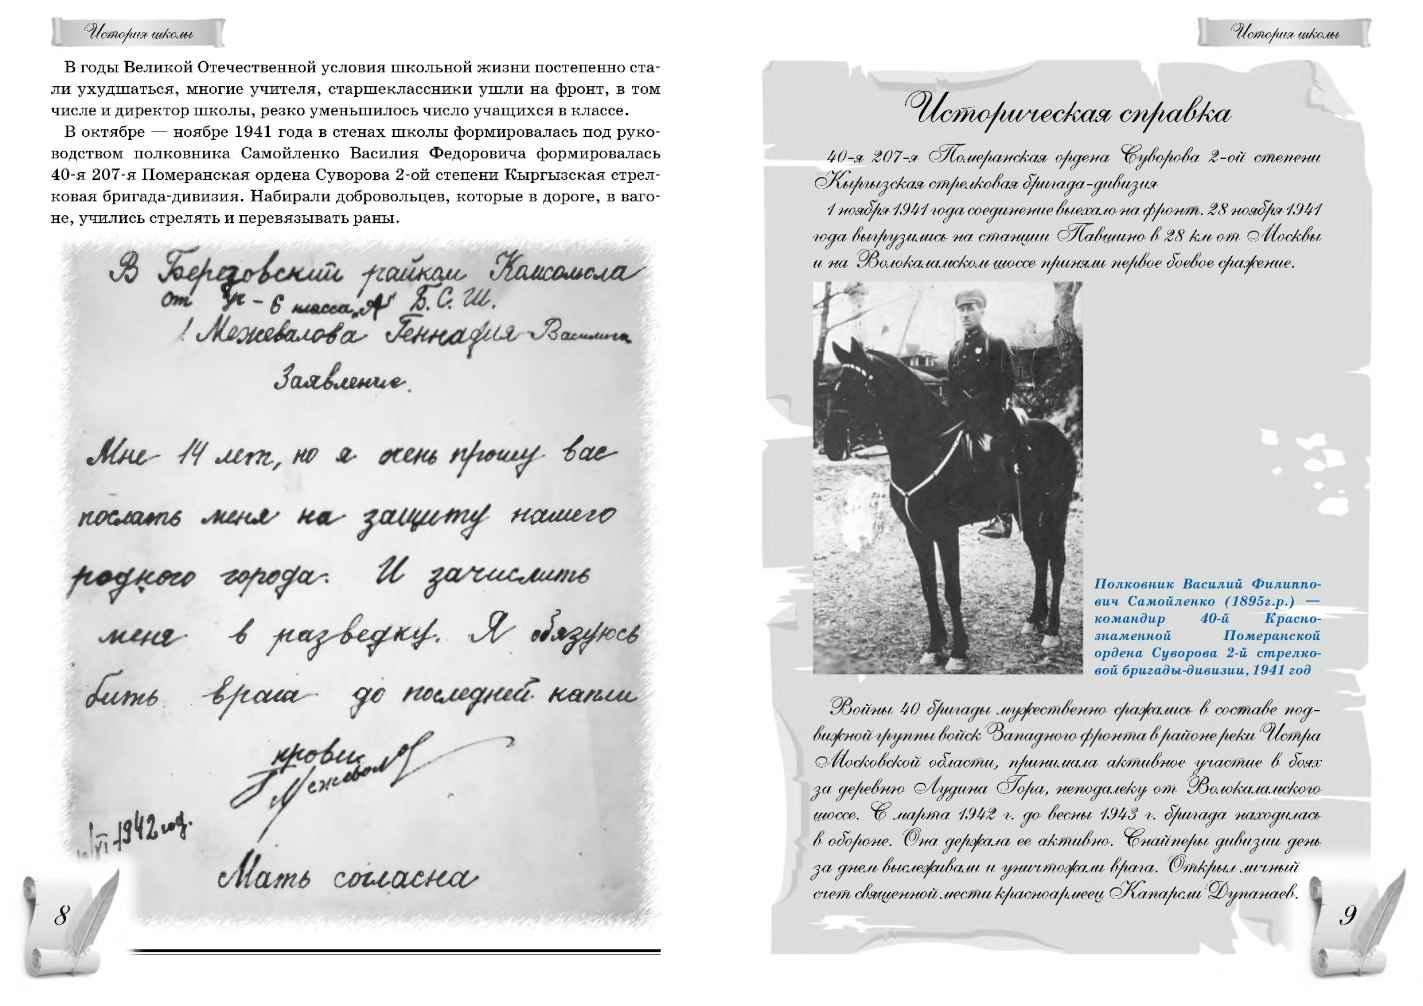 История школы
В годы Великой Отечественной условия школьной жизни постепенно ста-
ли ухудшаться, многие учителя, старшеклассники ушли на фронт, в том
числе и директор школы, резко уменьшилось число учащихся в классе.
В октябре — ноябре 1941 года в стенах школы формировалась под руко-
водством полковника Самойленко Василия Федоровича формировалась
40-я 207-я Померанская ордена Суворова 2-ой степени Кыргызская стрел-
ковая бригада-дивизия. Набирали добровольцев, которые в дороге, в ваго-
не, учились стрелять и перевязывать раны.
В Березовский райком Комсомола
от уч-6 класса "А" Б.С.Ш.
Межевалова Геннадия
Заявление.
Мне 14 лет, но я очень прошу вас
послать меня на защиту нашего
родного города. И зачислить
меня в разведку. Я обязуюсь
бить врага до последней капли
крови
1942 год.
Мать согласна
8
История школы
Историческая справка
40-я 207-я Померанская ордена Суворова 2-ой степени
Кыргызская стрелковая бригада-дивизия
1 ноября 1941 года соединение выехало на фронт. 28 ноября 1941
года выгрузились на станции Павшино в 28 км от Москвы
и на Волокаламском шоссе приняли первое боевое сражение.
Полковник Василий Филиппо-
вич Самойленко (1895г.р.) —
командир 40-й Красно-
знаменной Померанской
ордена Суворова 2-й стрелко-
вой бригады-дивизии, 1941 год
Войны 40 бригады мужественно сражались в составе под-
вижной группы войск Западного фронта в районе реки Истра
Московской области, принимала активное участие в боях
за деревню Лудина Гора, неподалеку от Волокаламского
шоссе. С марта 1942 г. до весны 1943 г. бригада находилась
в обороне. Она держала ее активно. Снайперы дивизии день
за днем выслеживали и уничтожали врага. Открыл личный
счет священной мести красноармеец Капарсли Дупанаев.
9